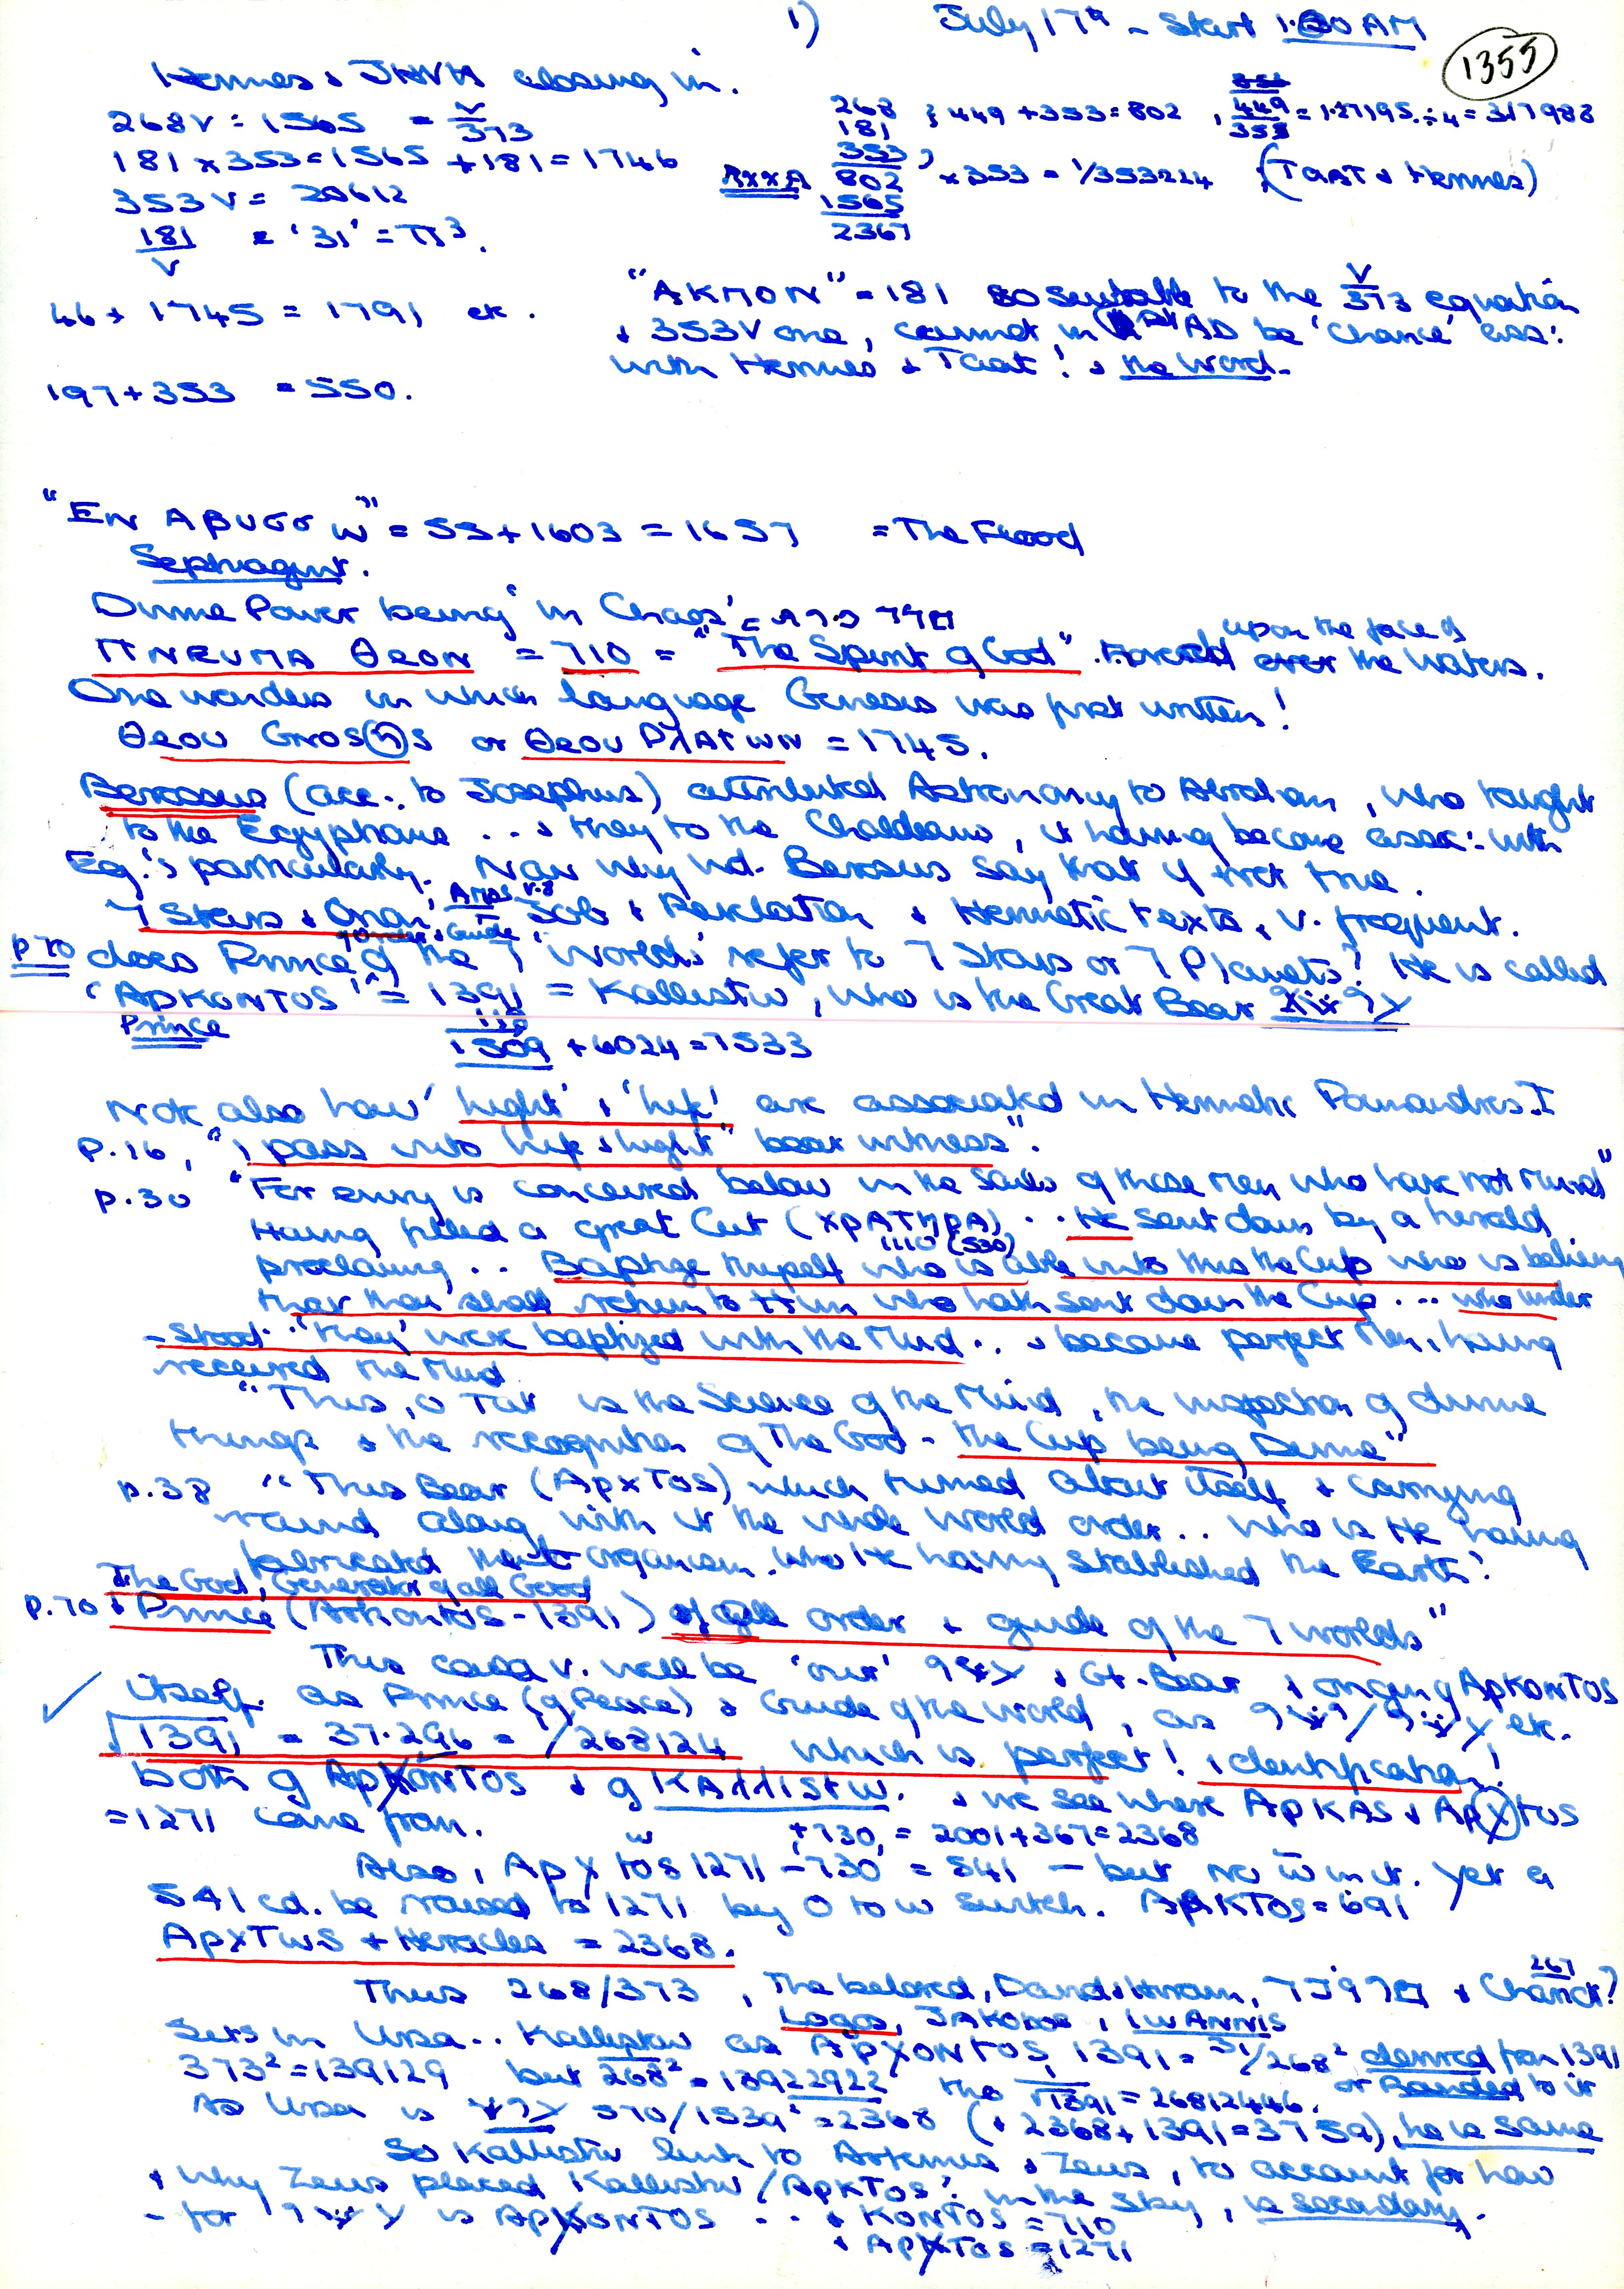 1) July 17th - Start 1.30 AM
1355
Hermes & JHVH closing in.
268V = 1565 = V/373
181 x 353 = 1565 + 181 = 1746
353V = 20612
181/V = '31' = π³.
46 + 1745 = 1791 etc.
197 + 353 = 550.
268
181
353
802
1565
2367
} 449 + 353 = 802, 449/353 = 1.27195 ÷ 4 = 317988
x 353 = 1/353224 (TaaT & Hermes)
"AKMON" = 181 so suitable to the V/373 equation
& 353V one, cannot in AD be 'chance' ass:
with Hermes & Taat! & the Word.
"EN ABUσσ w" = 55 + 1603 = 1657 = The Flood
Septuagint.
Divine Power being 'in Chaos' =
ΠNEUMA ΘEON = 710 = "The Spirit of God" hovered over the Waters.
upon the face of
One wonders in which language Genesis was first written!
ΘEOU GNOS(η)S or ΘEOU PλATWN = 1745.
Berossus (acc. to Josephus) attributed Astronomy to Abraham, who taught
to the Egyptians ... & they to the Chaldeans, it having become assoc: with
Eg:'s particularly. Now why wd. Berosus say that if not true.
7 Stars & Orion, Amos v.8 = Job & Revelation & Hermetic texts, v. frequent.
of Order & Guide
p 70 does Prince of the 7 Worlds' refer to 7 Stars or 7 Planets? He is called
'ApKONTOS' = 1391 = Kallistw, who is the Great Bear
Prince
1509 + 6024 = 7533
Note also how 'light' & 'life' are associated in Hermetic Poimandres. I
p.16, "I pass into life & light" bear witness".
p.30 "For envy is conceived below in the souls of those Men who have not Mind"
Having filled a great Cut (XpATHpA) .. He sent down by a herald
1110 (530)
proclaiming .. Baptize thyself who is able into this the Cup who is believing
that thou shall return to Him who hath sent down the Cup ... who under
-stood .. 'they' were baptized with the Mind .. & became perfect Men, having
received the Mind
"This, O Tat is the Science of the Mind, the inspection of divine
things & the recognition of The God - the Cup being Divine"
p.38 "This Bear (ApxTOS) which turned about itself & carrying
round along with it the whole World order .. Who is He having
fabricated this organism. Who He having stablished the Earth?
The God, Generator of all Good
p.70 & Prince (Arkontos - 1391) of all order & guide of the 7 worlds"
This could v. well be 'our' & Gt. Bear & origin of ApKONTOS
itself. as Prince (of Peace) & Guide of the World, as etc.
√1391 = 37.296 = 1/268124 which is perfect! identification!
both of ApXONTOS & of KAλλIStW. & we see where ApKAS & Ap(X)tos
= 1271 came from. +730 = 2001 + 367 = 2368
Also, ApXtos 1271 - 730 = 541 - but no w in it. Yet a
541 cd. be raised to 1271 by O to w switch. ApKTOS = 691
ApXTwS + Heracles = 2368.
267
Thus 268/373, The beloved, David & Hiram, & Chariot?
Logos, JAKobos, IwANNIS
Sets in Ursa .. Kallistw as ApXONTOS, 1391 = 31/268² derived from 1391
373² = 139129 but 1/268² = 13922922 the 1/√1391 = 26812446. or Bonded to it
As Ursa is 570/1539² = 2368 (& 2368 + 1391 = 3759), he is same
So Kallistw link to Artemis & Zeus, to account for how
& why Zeus placed Kallistw/ApKTos' in the sky, is secondary.
- for is ApXONTOS .. & KONTOS = 710
& ApXTOS = 1271